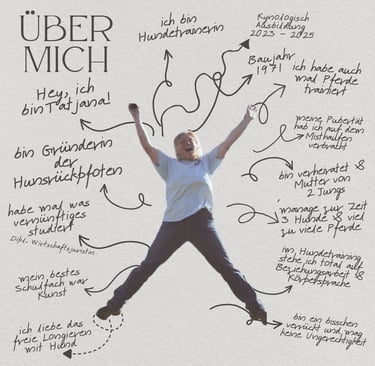 ÜBER
MICH
ich bin
Hundetrainerin
Kynologisch
Ausbildung
2023 - 2025
Baujahr
1971
ich habe auch
mal Pferde
trainiert
Hey, ich
bin Tatjana!
meine Pubertät
hab ich auf dem
Misthaufen
verbracht
bin Gründerin
der
Hunsrückpfoten
bin verheiratet &
Mutter von
2 Jungs
habe mal was
vernünftiges
studiert
Dipl. Wirtschaftsjuristin
manage zur Zeit
3 Hunde & viel
zu viele Pferde
im Hundetraining
stehe ich total auf
Beziehungsarbeit &
Körpersprache
mein bestes
Schulfach war
Kunst
ich liebe das
freie Longieren
mit Hund
bin ein bisschen
verrückt und, mag
keine Ungerechtigkeit